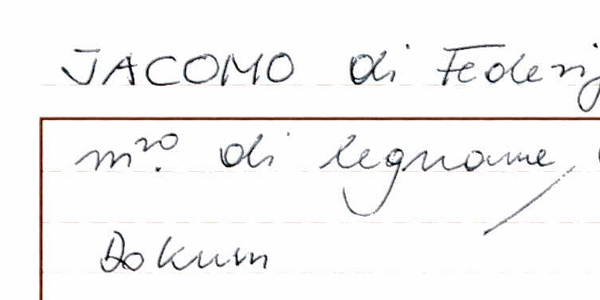 JACOMO di Federig
m.ro di legname,
Dokum